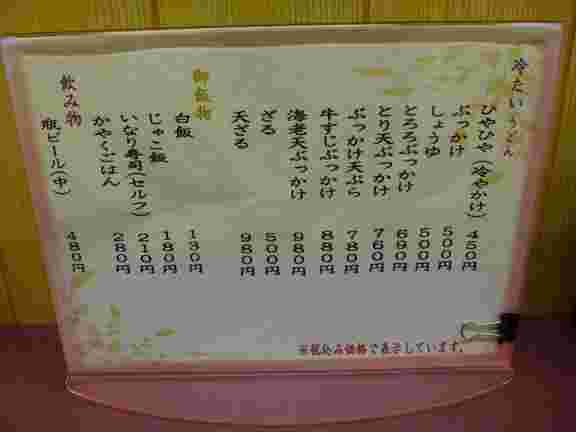 冷たいうどん
ひやひや(冷やかけ) 450円
ぶっかけ 500円
しょうゆ 500円
とろろぶっかけ 690円
とり天ぶっかけ 760円
ぶっかけ天ぷら 780円
牛すじぶっかけ 880円
海老天ぶっかけ 980円
ざる 500円
天ざる 980円
御飯物
白飯 130円
じゃこ飯 180円
いなり寿司(セルフ) 210円
かやくごはん 280円
飲み物
瓶ビール(中) 480円
※税込み価格で表示しています。